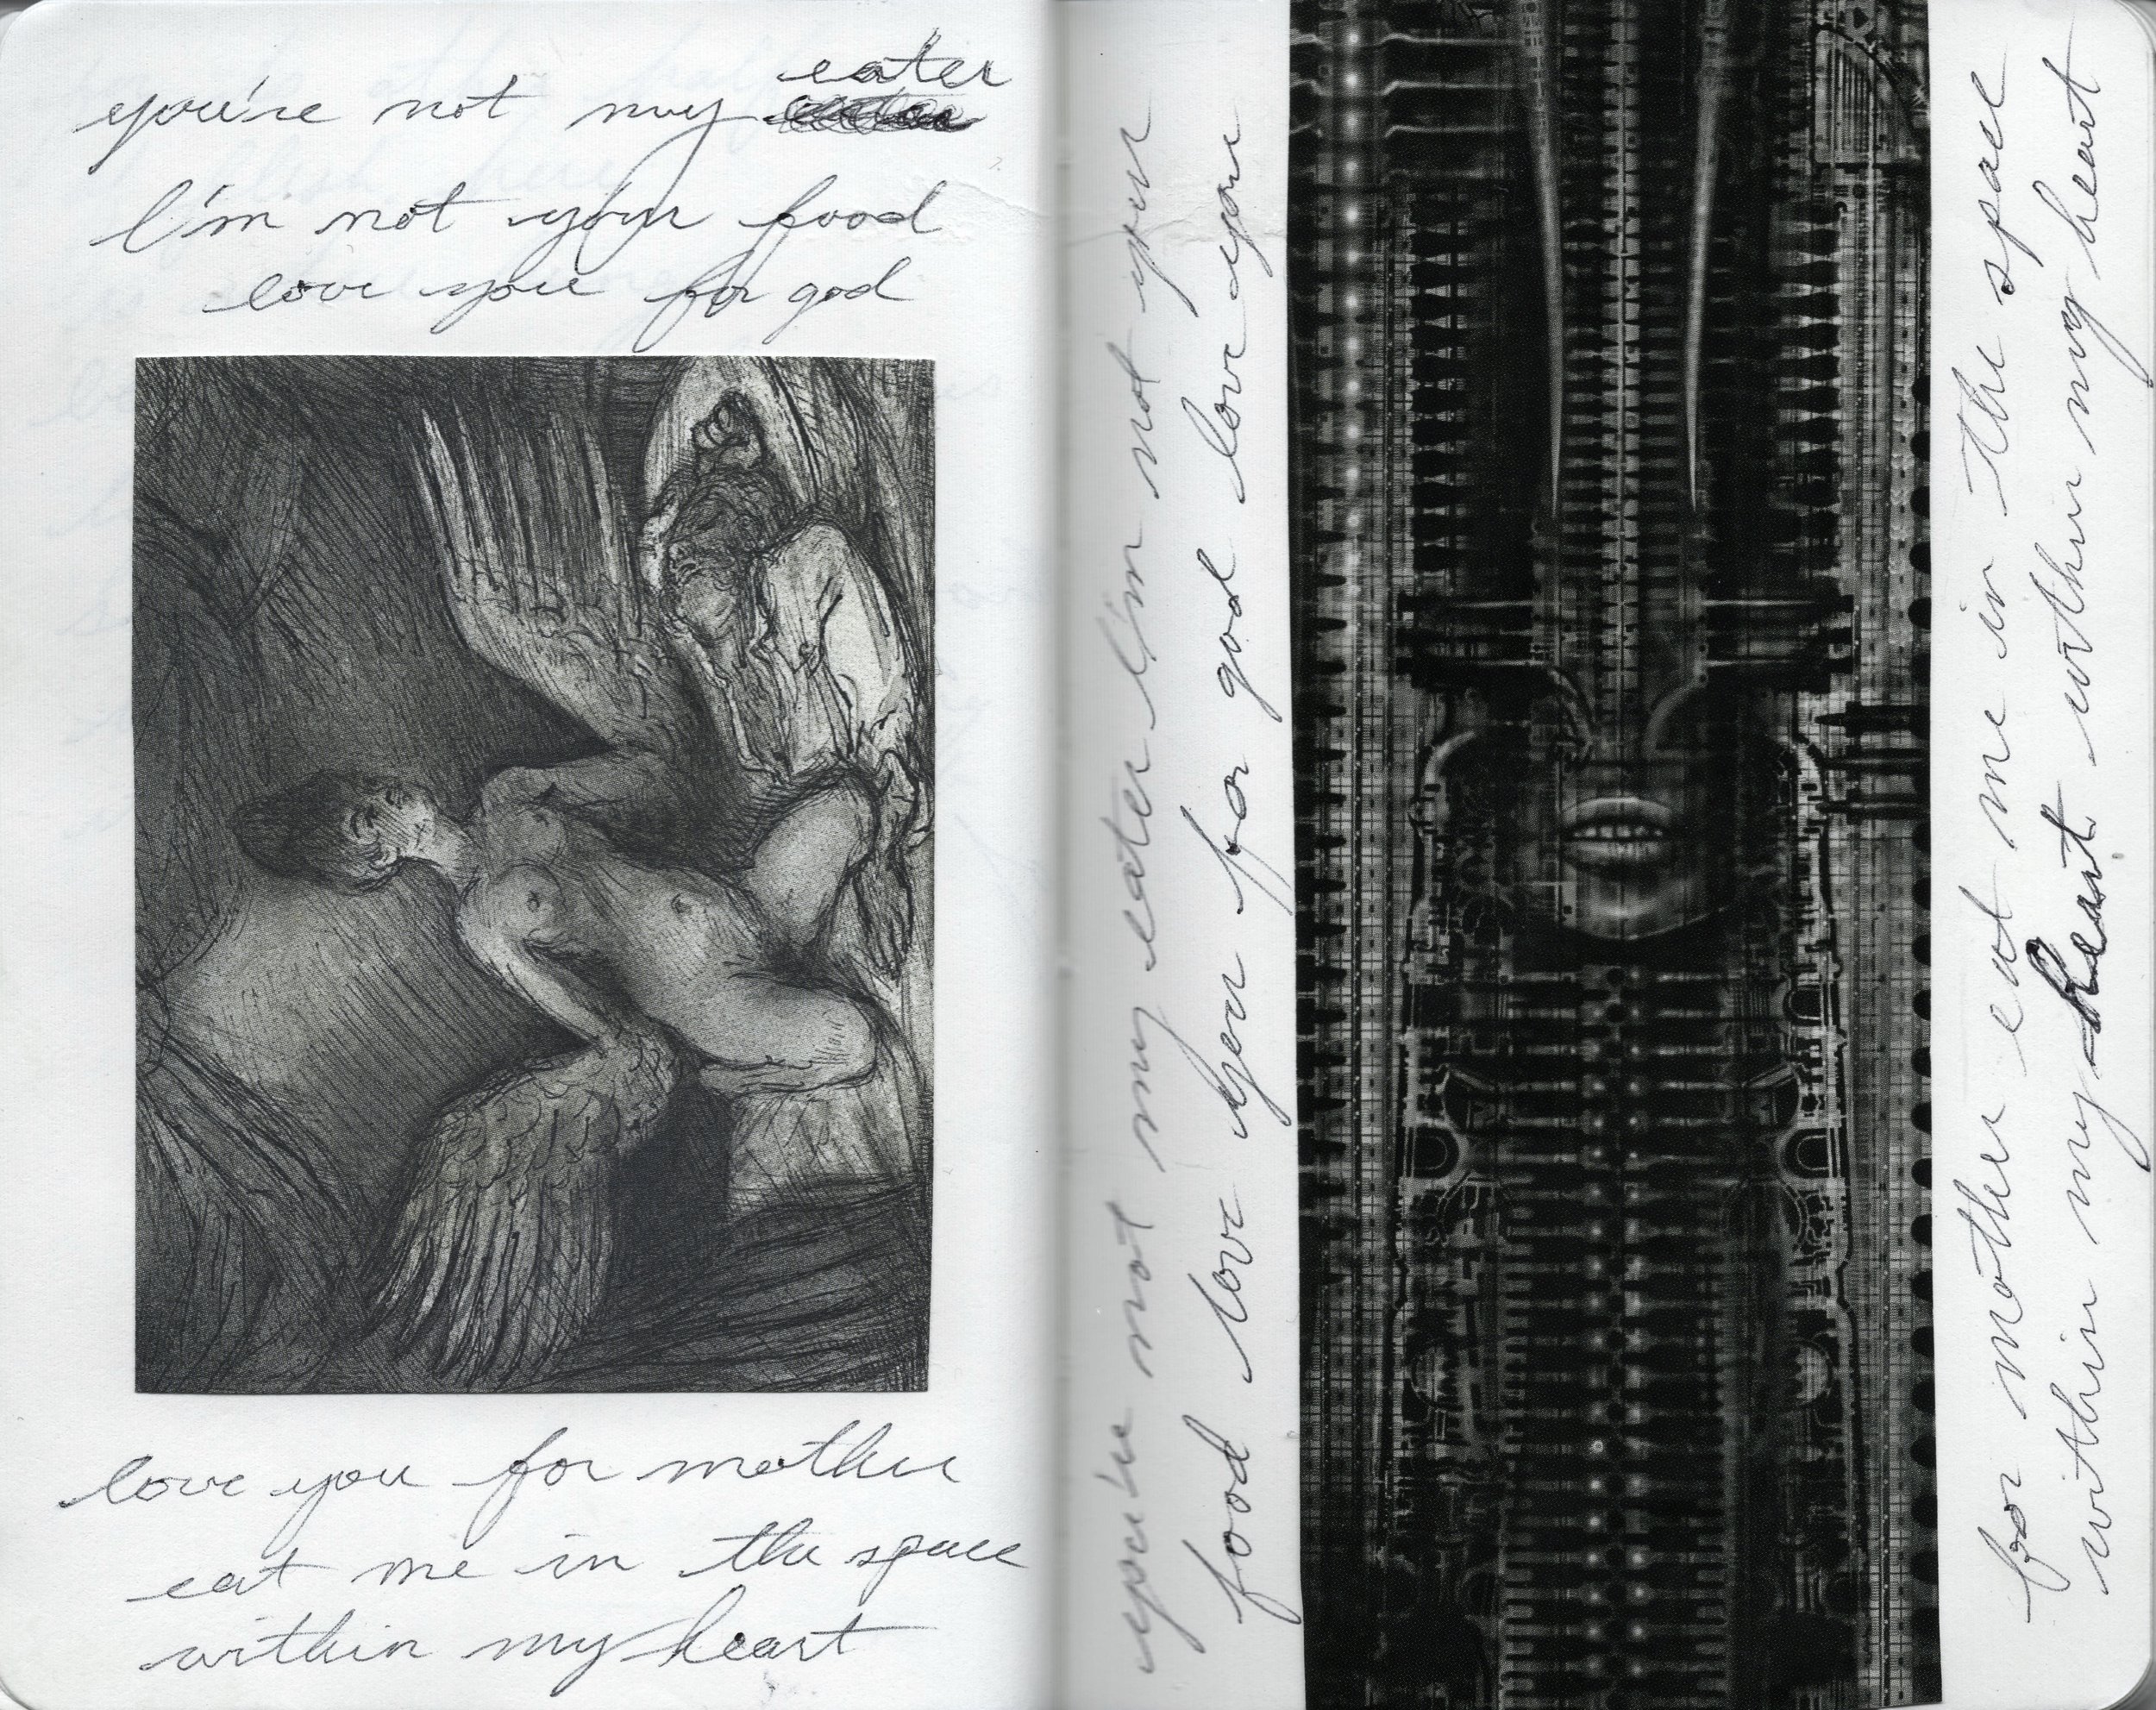 eater
you're not my
I'm not your food
love you for god
love you for mother
eat me in the space
within my heart
you're not my eater I'm not your
food love you for god love you
for mother eat me in the space
within my heart within my heart